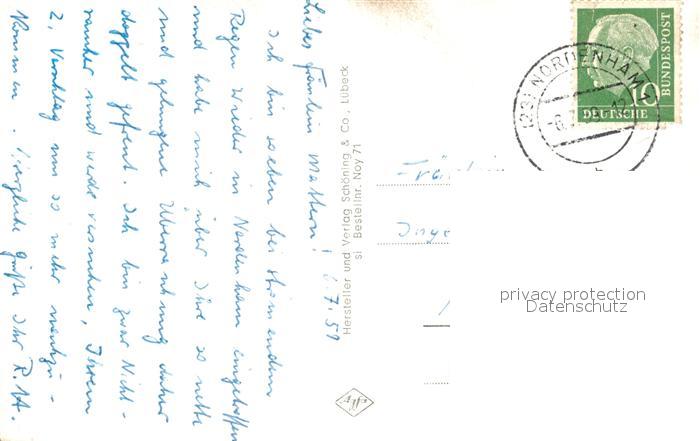 Liebes Fräulein Mattern! 6.7.59
Ich bin soeben bei strömendem
Regen wieder in Nordenham eingetroffen
und habe mich über Ihre so nette
und gelungene Überraschung daher
doppelt gefreut. Ich bin zwar Nicht-
raucher und werde versuchen, Ihrem
2. Vorschlag um so mehr nachzu-
kommen. Herzliche Grüße Ihr R.H.
Hersteller und Verlag Schöning & Co., Lübeck
si Bestellnr. Noy 71
Fräulein
Inge
(23) NORDENHAM 1
DEUTSCHE
BUNDESPOST
10
privacy protection
Datenschutz